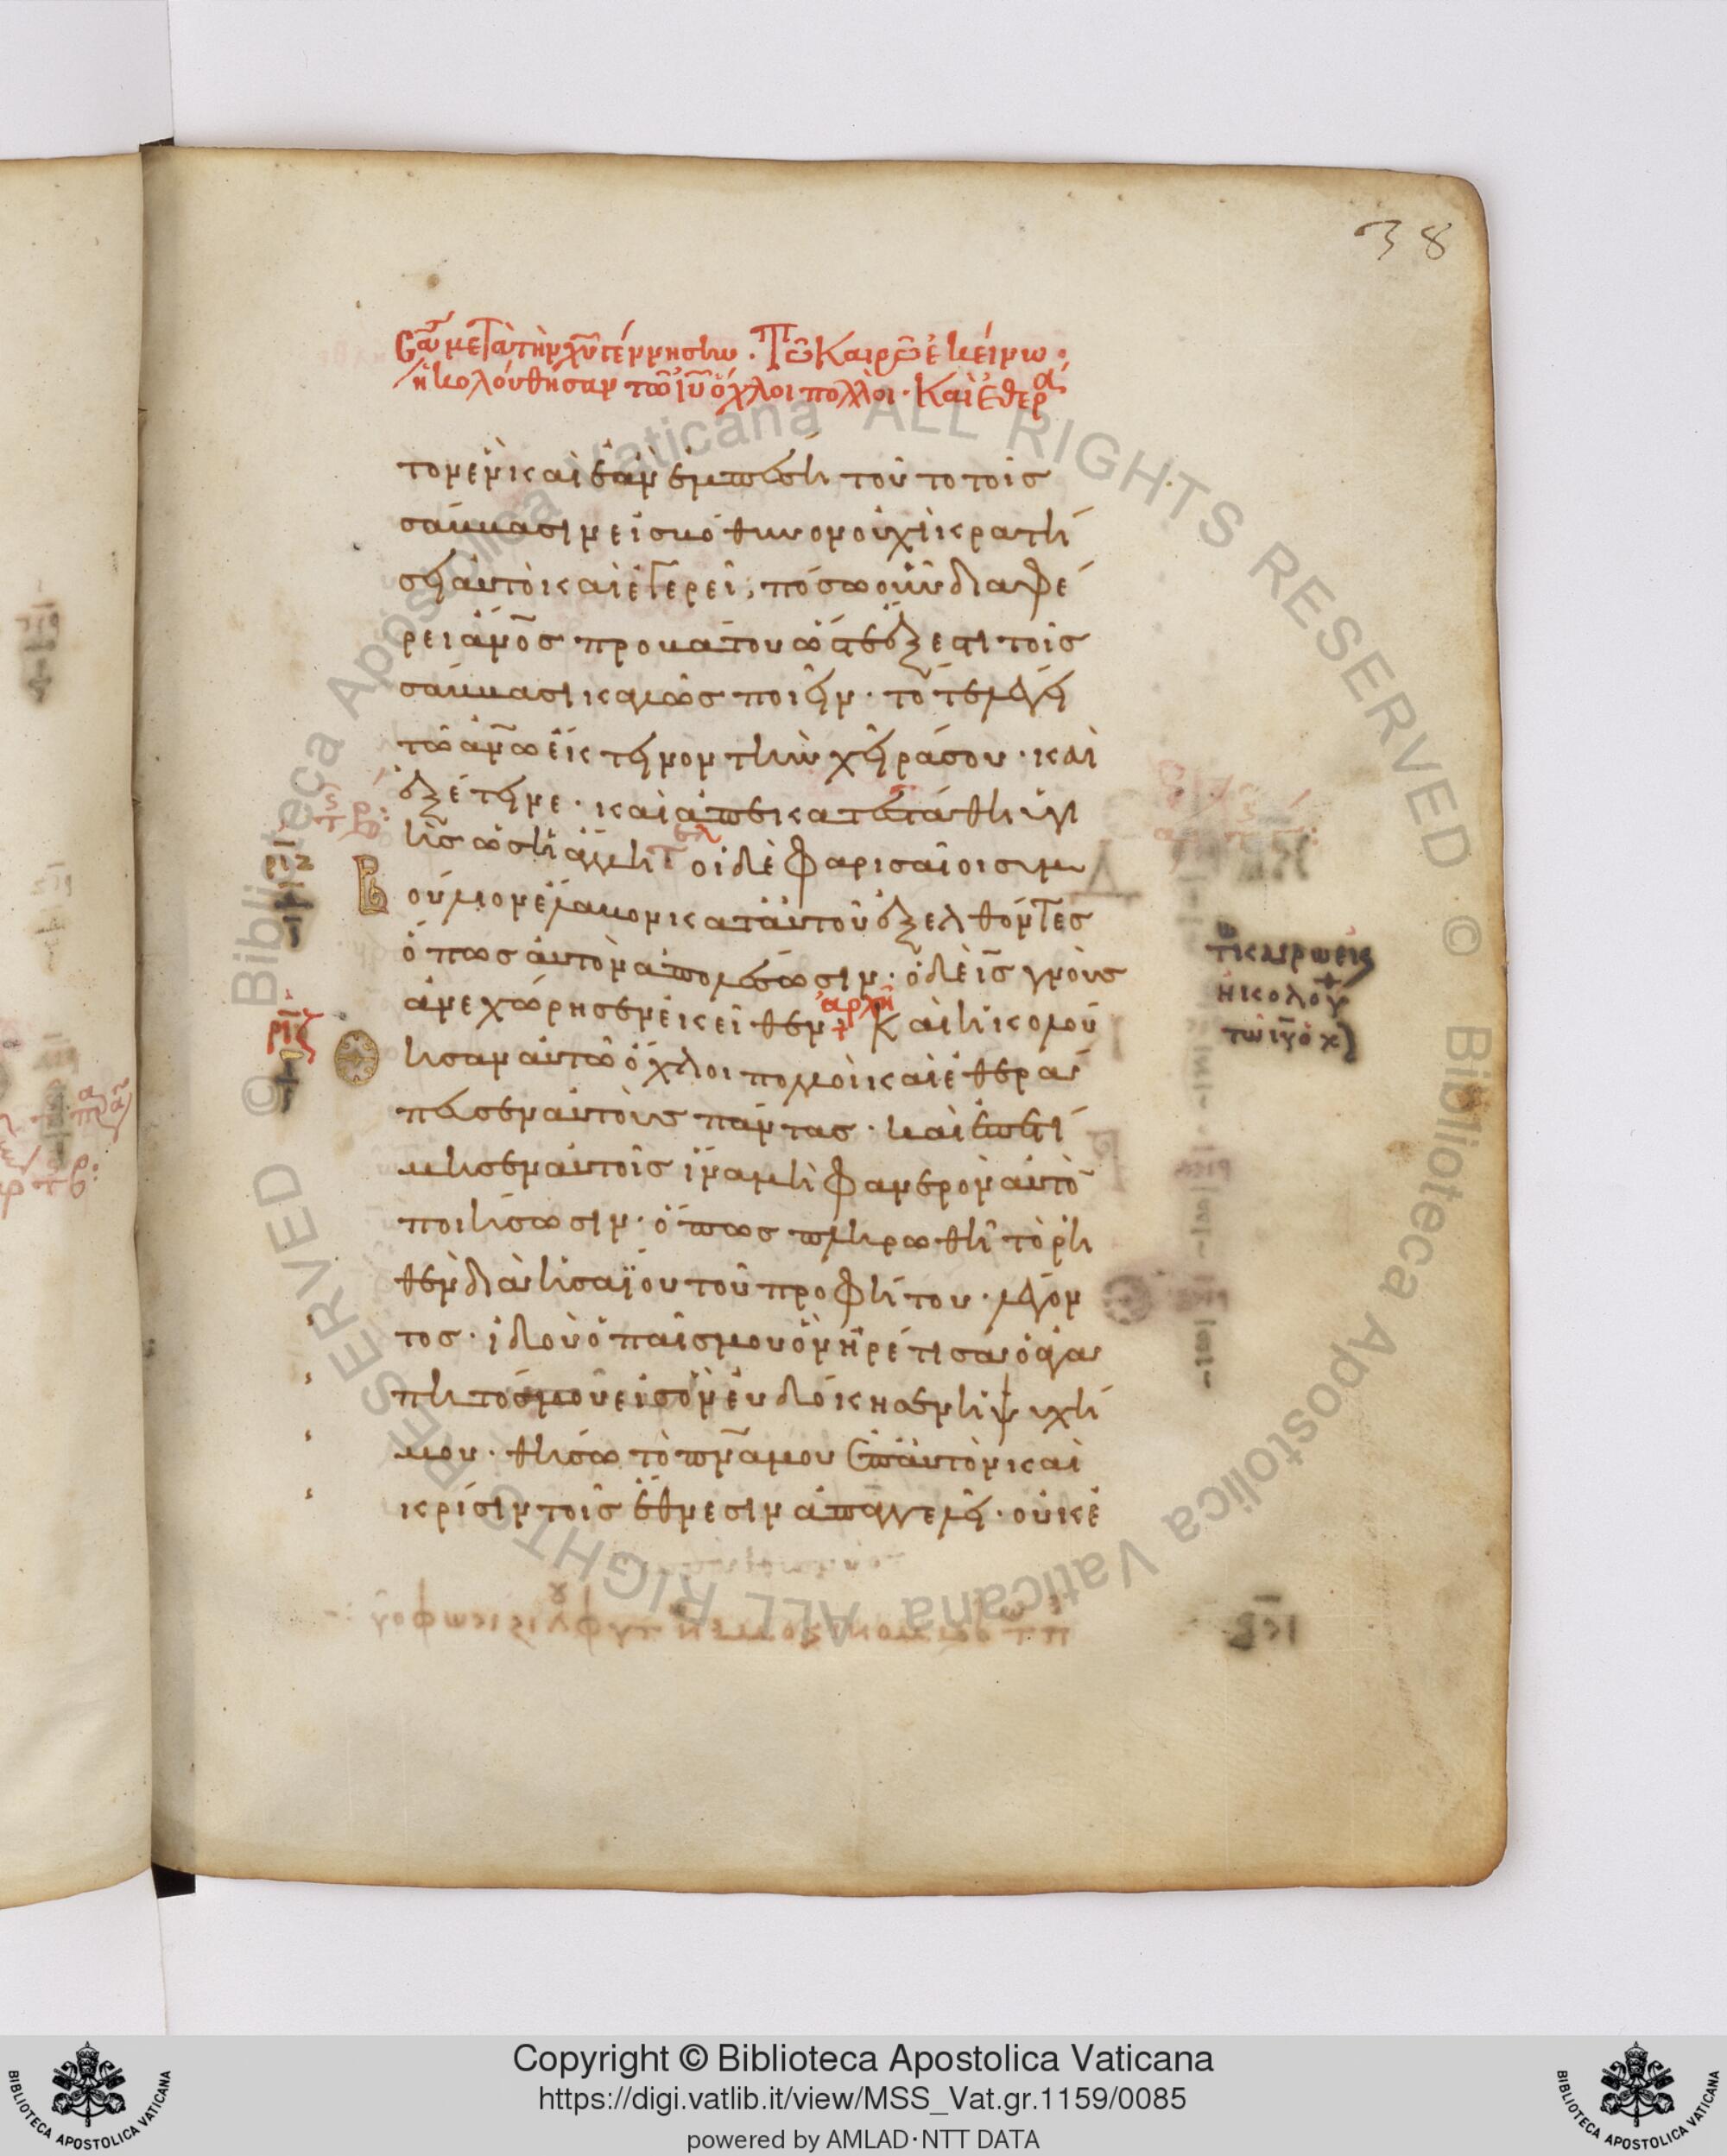 38
Σα μετὰ τὴν χυ γέννησιν. Τῶ καιρῶ ἐκείνω.
ἠκολούθησαν τῶ ιυ ὄχλοι πολλοὶ. Καὶ ἐθερα
τον ἓν καὶ ἐὰν ἐμπέση τοῦτο τοῖσ
σάββασιν εἰσ βόθυνον οὐχὶ κρατή
ση αὐτὸ καὶ ἐγερεῖ; πόσω οὖν διαφέ
ρει ἄνοσ προβάτου ὥστε ἔξεστι τοῖσ
σάββασι καλῶσ ποιῆν. τό τε λέγει
τῶ ἀνω ἔκτηνον τὴν χῆρά σου. καὶ
ἐξέτηνε. καὶ ἀπεκατεστάθη ὑγι
ὴσ ὡσ ἡ ἄλλη τελ οἱ δὲ φαρισαῖοι συμ
βούλιον ἔλαβον κατ' αὐτοῦ ἐξελθόντεσ
ὅπωσ αὐτὸν ἀπολέσωσιν. ὁ δὲ ισ γνοὺσ
ἀνεχώρησεν ἐκεῖθεν ἀρχὴ Καὶ ἠκολού
ησαν αὐτῶ ὄχλοι πολλοὶ καὶ ἐθερά
πευσεν αὐτοὺσ πάντασ. καὶ ἐπετί
μησεν αὐτοῖσ ἵνα μὴ φανερὸν αὐτὸ
ποιήσωσιν. ὅπωσ πληρωθῆ τὸ ῥη
θὲν διὰ ἠσαΐου τοῦ προφήτου. λέγον
τοσ. ἰδοὺ ὁ παῖσ μου ὃν ἡρέτισα ὁ ἀγα
πητόσ μου εἰσ ὃν εὐδόκησεν ἡ ψυχή
μου. θήσω τὸ πνα μου ἐπ' αὐτὸν καὶ
κρίσιν τοῖσ ἔθνεσιν ἀπαγγελεῖ. οὐκ ἐ
ριζ
τω καιρω εκει
ηκολου
τω ιυ οχ
Copyright © Biblioteca Apostolica Vaticana
https://digi.vatlib.it/view/MSS_Vat.gr.1159/0085
powered by AMLAD·NTT DATA
BIBLIOTECA APOSTOLICA VATICANA
BIBLIOTECA APOSTOLICA VATICANA
© Biblioteca Apostolica Vaticana ALL RIGHTS RESERVED
© Biblioteca Apostolica Vaticana ALL RIGHTS RESERVED